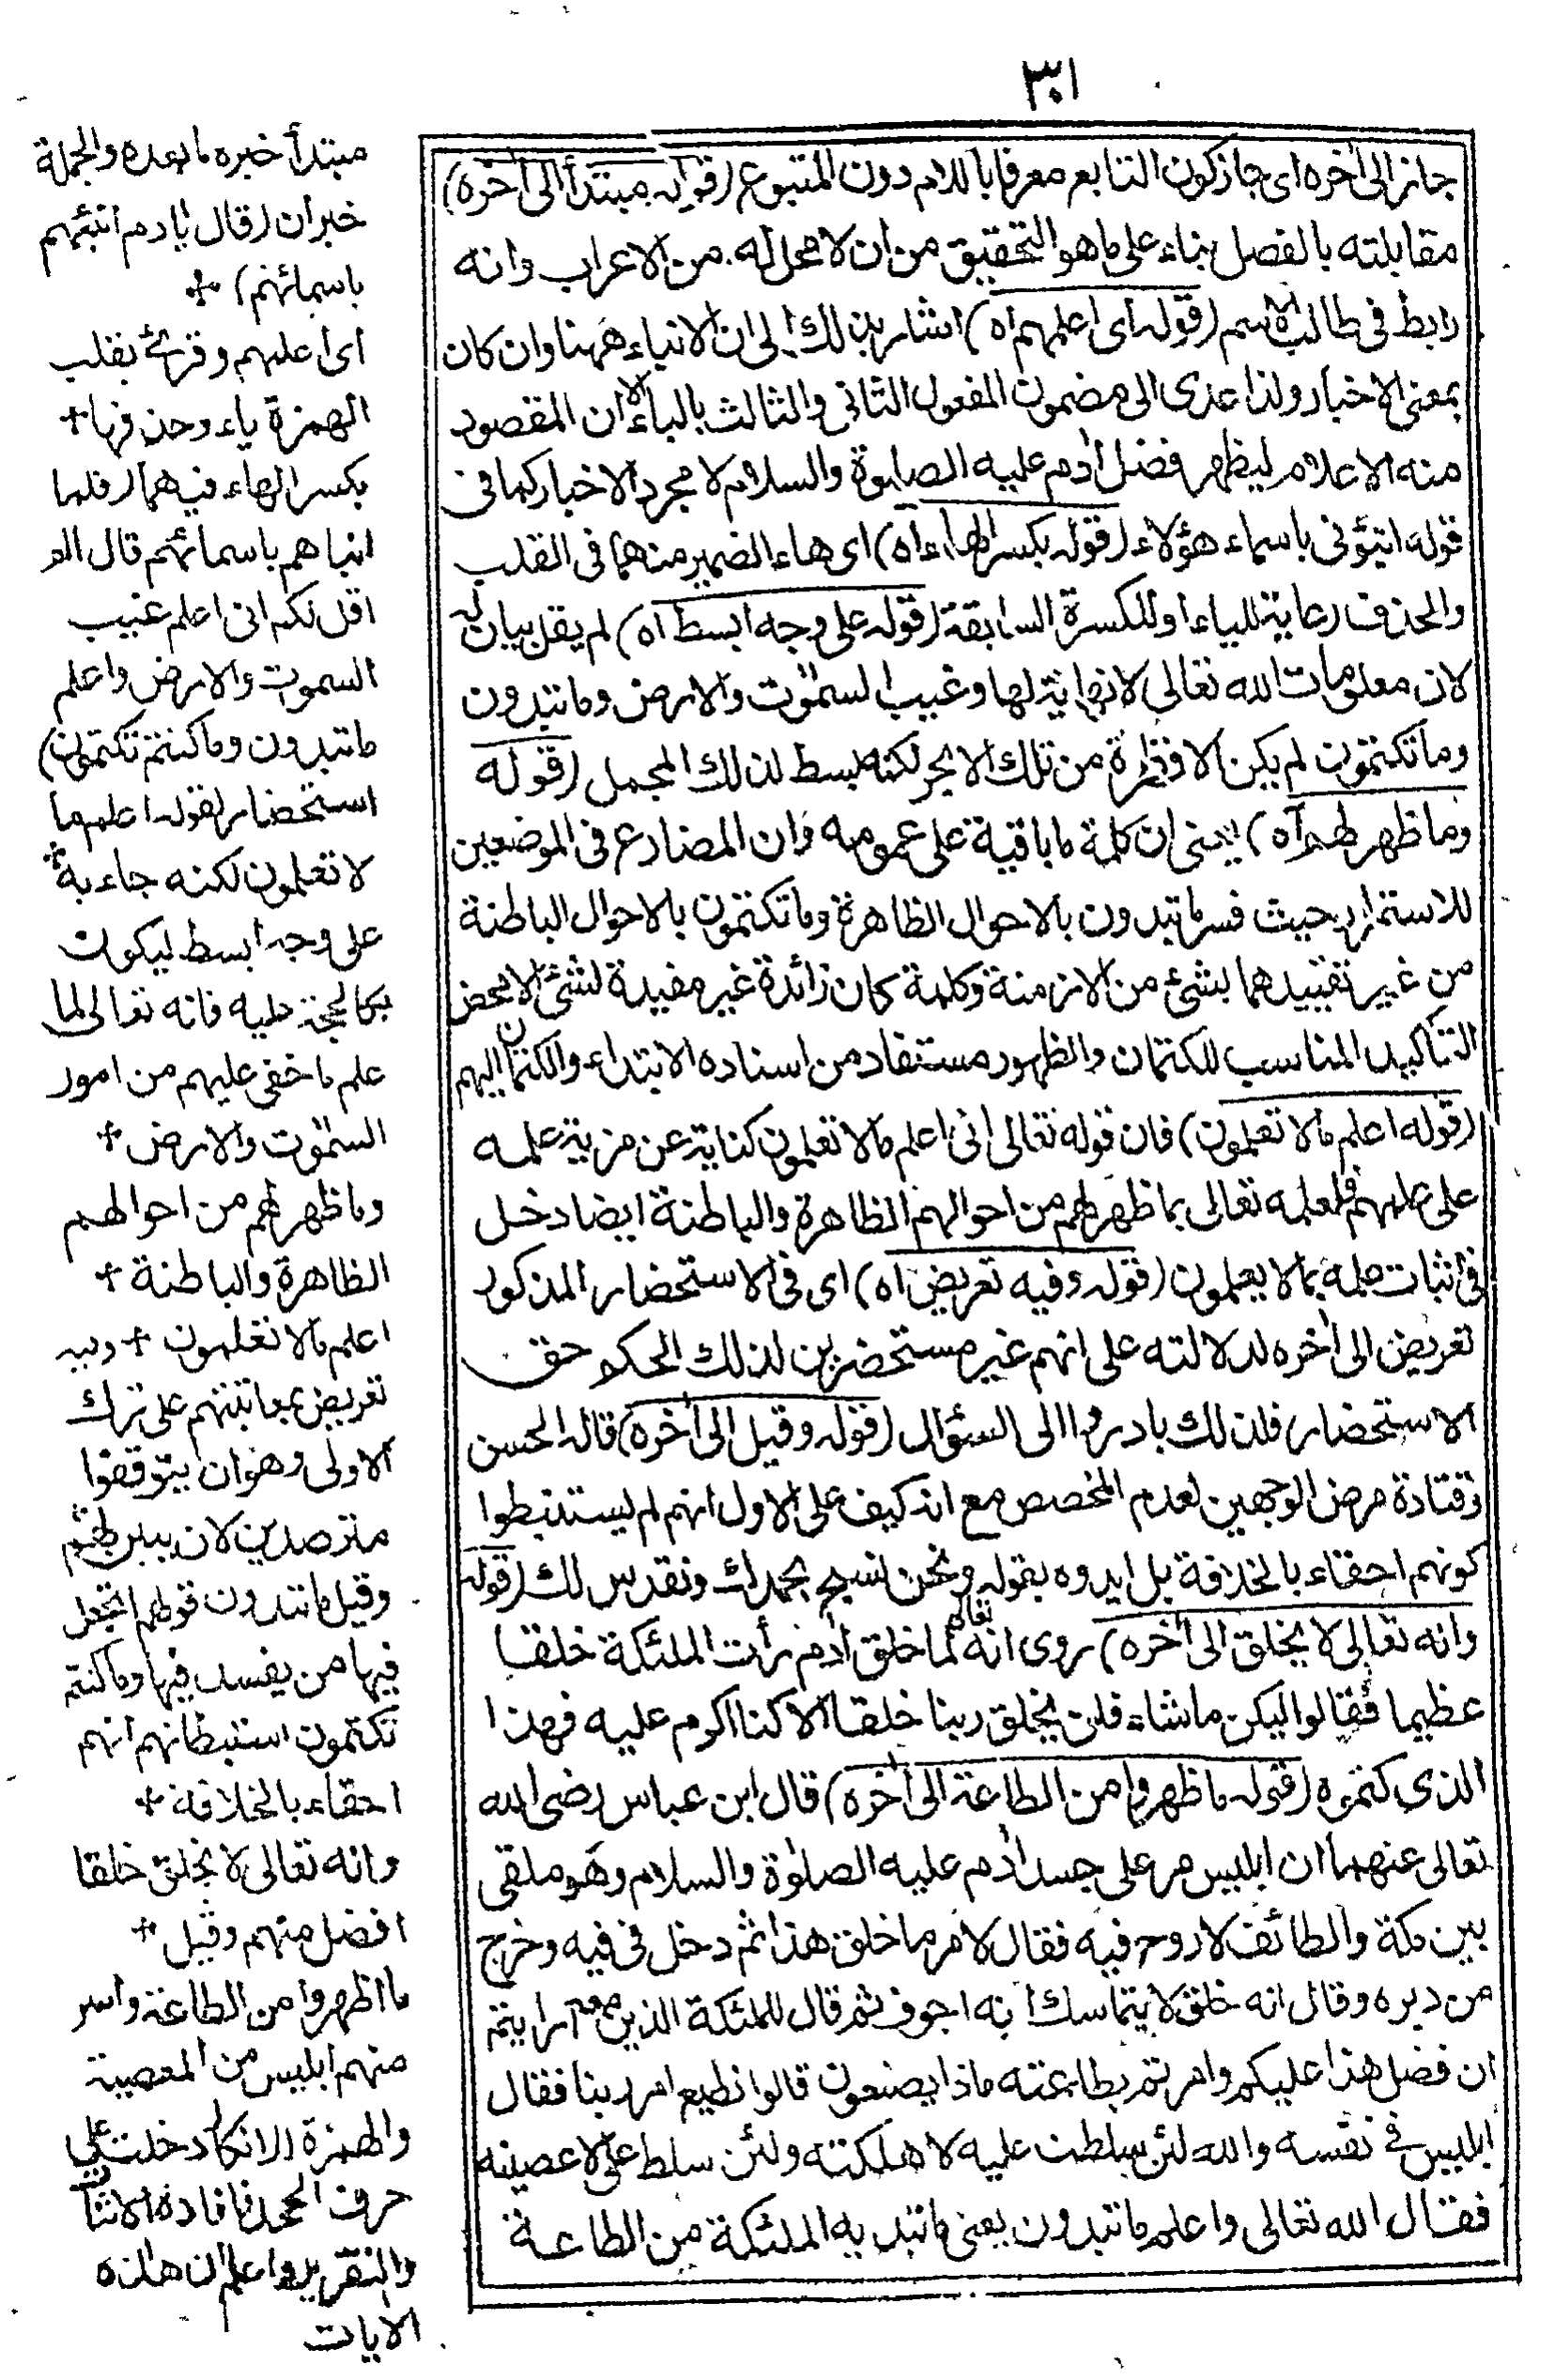 ٣٠١
جاز الى اٰخره اى جاز كون التابع معرفا باللام دون المتبوع (قوله مبتدأ الى اٰخره)
مقابلته بالفصل بناء على ما هو التحقيق من ان لا محل له من الاعراب وانه
رابط فى طالب الاسم (قوله اى اعلمهم اه) اشار بذلك الى ان الانباء ههنا وان كان
بمعنى الاخبار ولذا عدى الى مضمون المفعول الثانى والثالث بالباء الا ان المقصود
منه الاعلام ليظهر فضل اٰدم عليه الصلوة والسلام لا مجرد الاخبار كما فى
قوله انبئونى باسماء هؤلاء (قوله بكسر الهاء اه) اى هاء الضمير منهما فى القلب
والحذف رعاية للياء او للكسرة السابقة (قوله على وجه ابسط اه) لم يقل بيان له
لان معلومات الله تعالى لا نهاية لها وغيب السمٰوٰت والارض وما تبدون
وما تكتمون لم يكن الا قطرة من تلك الابحر لكنه بسط لذلك المجمل (قوله
وما ظهر لهم اٰه) يعنى ان كلمة ما باقية على عمومه وان المضارع فى الموضعين
للاستمرار حيث فسر ما تبدون بالاحوال الظاهرة وما تكتمون بالاحوال الباطنة
من غير تقييدهما بشئ من الازمنة وكلمة كان زائدة غير مفيدة لشئ الا محض
التاكيد المناسب للكتمان والظهور مستفاد من اسناده الابتداء والكتمان اليهم
(قوله اعلم ما لا تعلمون) فان قوله تعالى انى اعلم ما لا تعلمون كناية عن مزية علمه
على علمهم فلعلمه تعالى بما ظهر لهم من احوالهم الظاهرة والباطنة ايضا دخل
فى اثبات علمه بما لا يعلمون (قوله وفيه تعريض اه) اى فى الاستحضار المذكور
تعريض الى اٰخره لدلالته على انهم غير مستحضرين لذلك الحكم حق
الاستحضار فلذلك بادروا الى السؤال (قوله وقيل الى اٰخره) قاله الحسن
وقتادة مرض الوجهين لعدم المخصص مع انه كيف على الاول انهم لم يستنبطوا
كونهم احقاء بالخلافة بل ايدوه بقوله ونحن نسبح بحمدك ونقدس لك (قوله
وانه تعالى لا يخلق الى اٰخره) روى انه تعالى لما خلق اٰدم رأت الملئكة خلقا
عظيما فقالوا ليكن ما شاء فلن يخلق ربنا خلقا الا كنا اكرم عليه فهذا
الذى كتموه (قوله ما ظهروا من الطاعة الى اٰخره) قال ابن عباس رضى الله
تعالى عنهما ان ابليس مر على جسد اٰدم عليه الصلوٰة والسلام وهو ملقى
بين مكة والطائف لا روح فيه فقال لامر ما خلق هذا ثم دخل فى فيه وخرج
من دبره وقال انه خلق لا يتماسك انه اجوف ثم قال للملئكة الذين معه ارايتم
ان فضل هذا عليكم وامرتم بطاعته ماذا يصنعون قالوا نطيع امر ربنا فقال
ابليس فى نفسه والله لئن سلطت عليه لاهلكنه ولئن سلط على لاعصينه
فقال الله تعالى واعلم ما تبدون يعنى ما تبديه الملئكة من الطاعة
مبتدأ خبره ما بعده والجملة
خبر ان (قال يا اٰدم انبئهم
باسمائهم) +
اى اعلمهم وقرئ بقلب
الهمزة ياء وحذفها +
بكسر الهاء فيهما (فلما
انباهم باسمائهم قال الم
اقل لكم انى اعلم غيب
السموٰت والارض واعلم
ما تبدون وما كنتم تكتمون)
استحضار لقوله اعلم ما
لا تعلمون لكنه جاء به
على وجه ابسط ليكون
كالحجة عليه فانه تعالى لما
علم ما خفى عليهم من امور
السمٰوٰت والارض +
وما ظهر لهم من احوالهم
الظاهرة والباطنة +
اعلم ما لا تعلمون + وفيه
تعريض بمعاتبتهم على ترك
الاولى وهو ان يتوقفوا
مترصدين لان يبين لهم
وقيل ما تبدون قولهم اتجعل
فيها من يفسد فيها وما كنتم
تكتمون استبطانهم انهم
احقاء بالخلافة +
وانه تعالى لا يخلق خلقا
افضل منهم وقيل +
ما اظهروا من الطاعة واسر
منهم ابليس من المعصية
والهمزة للانكار دخلت على
حرف الجحد فافادة الاثبات
والتقرير واعلم ان هذه
الايات